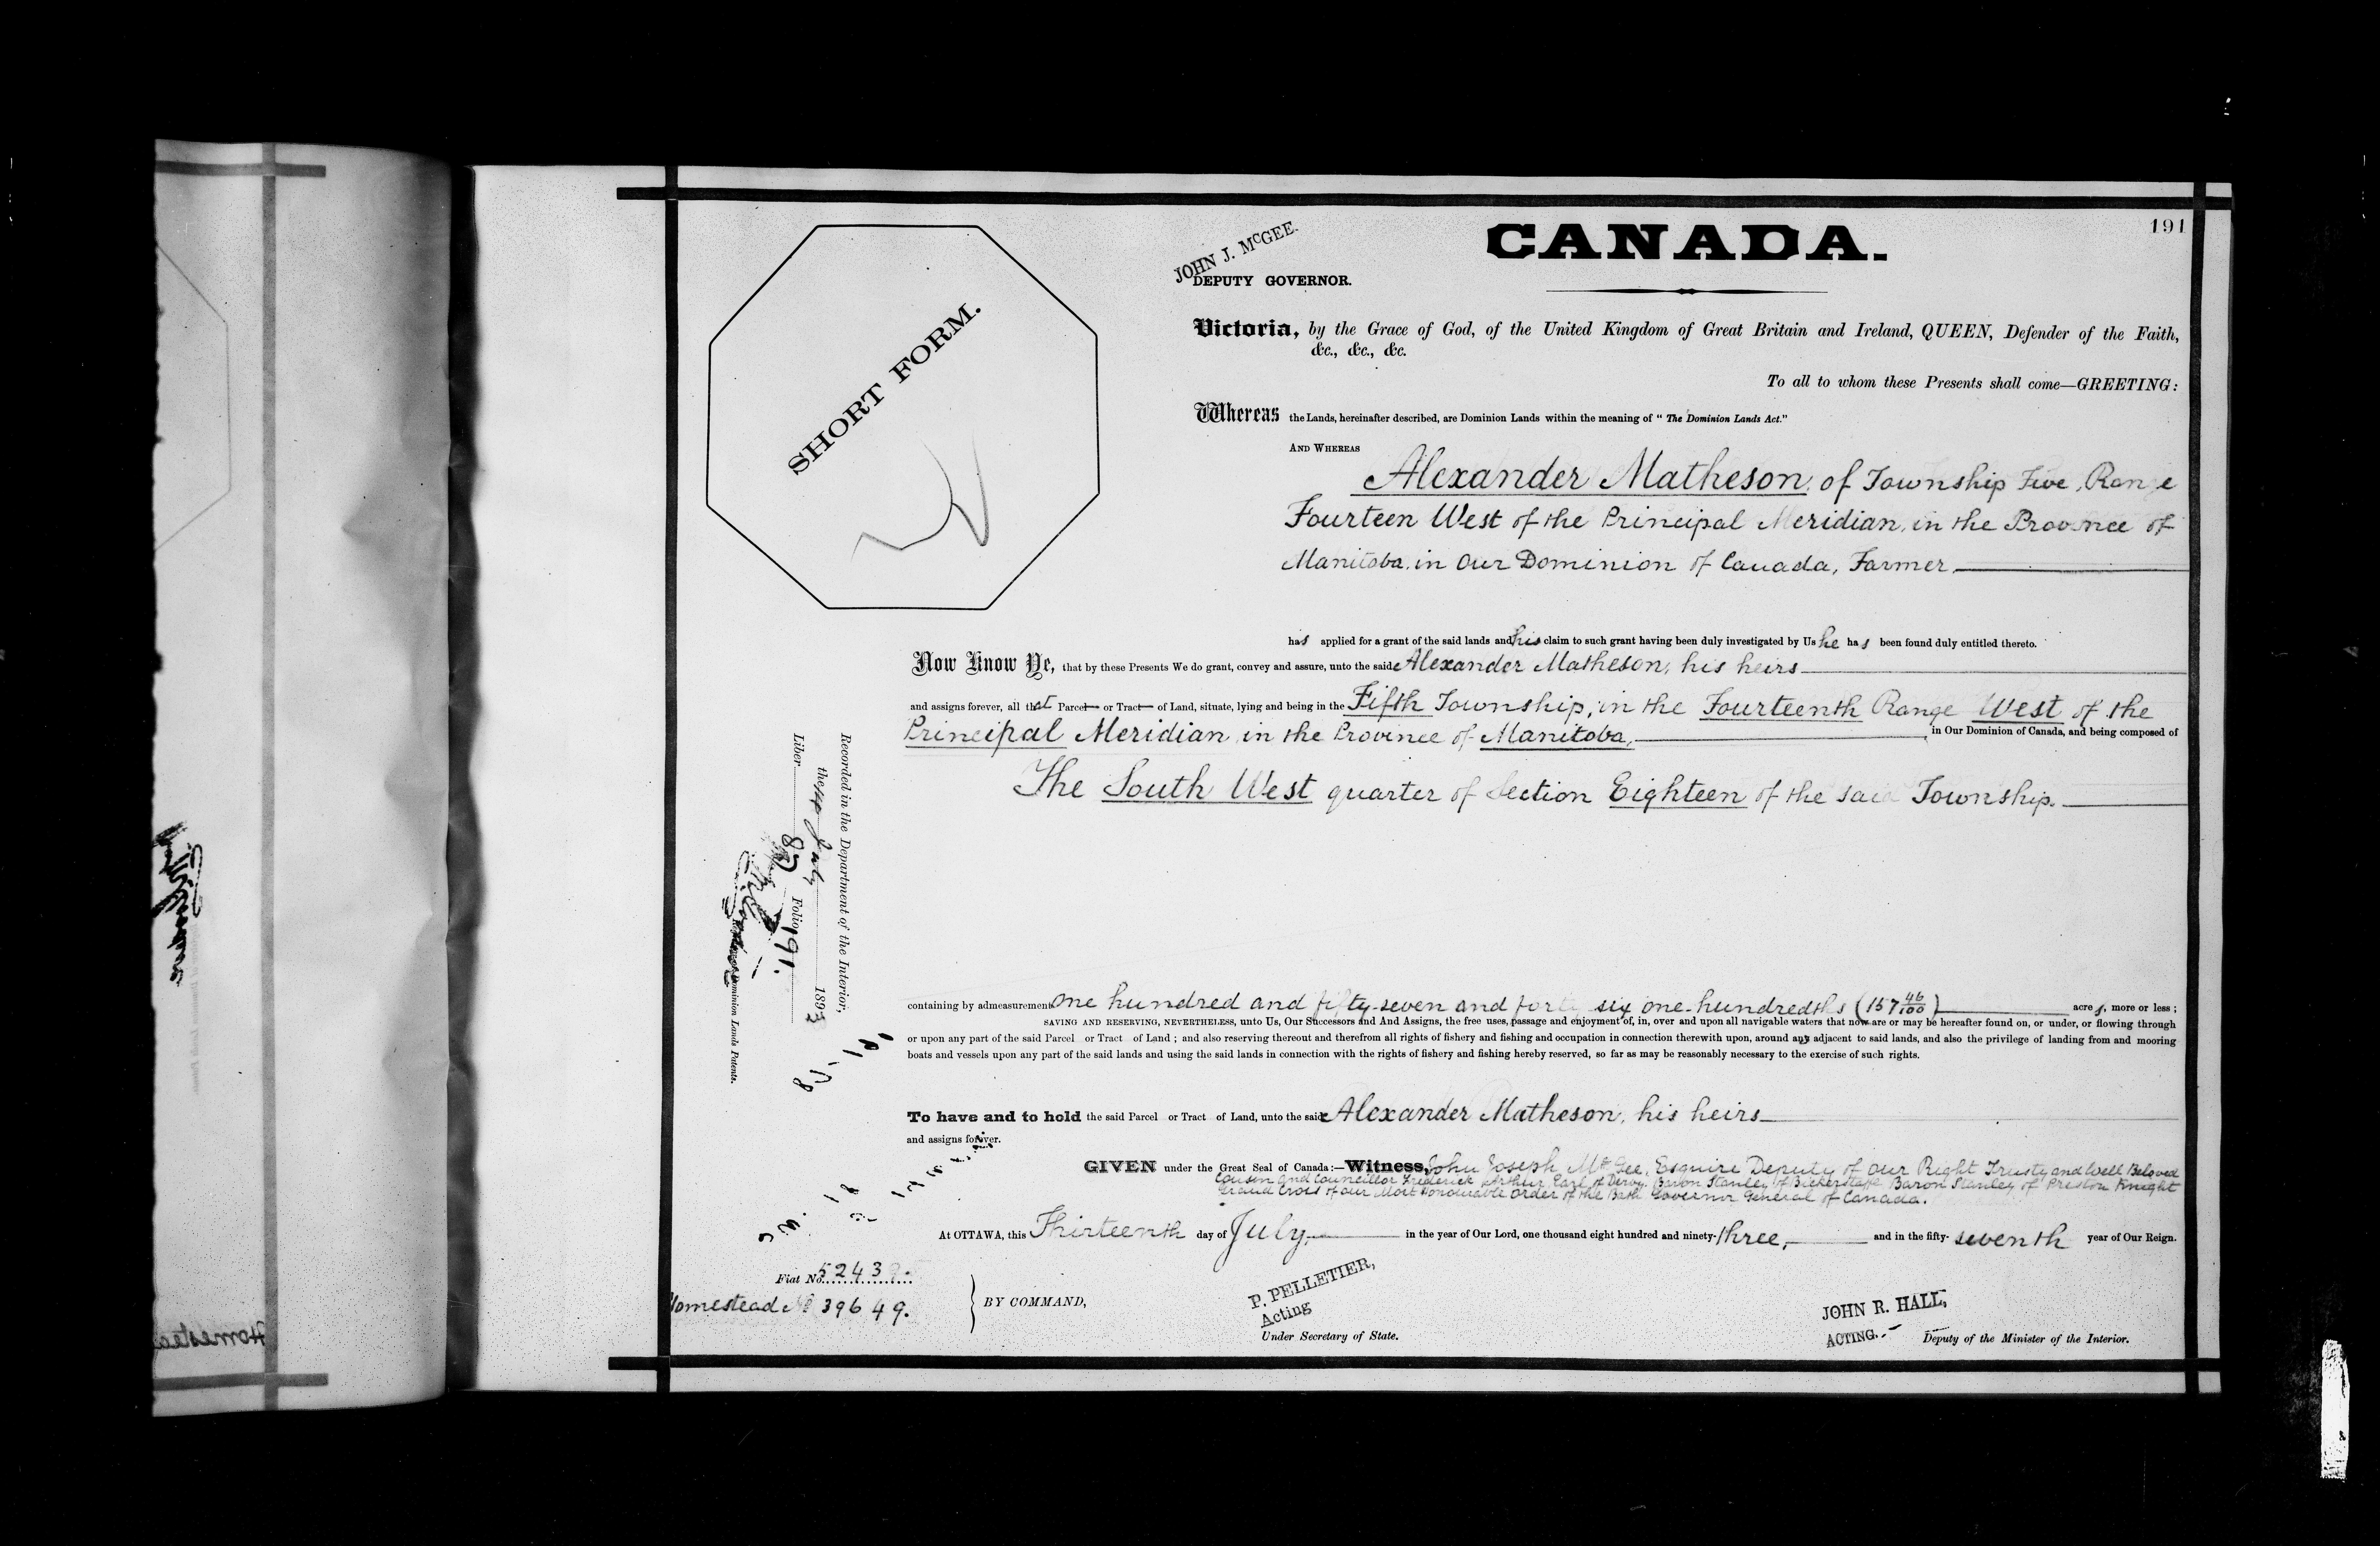 191
CANADA.
JOHN J. McGEE.
DEPUTY GOVERNOR.
SHORT FORM.
Victoria, by the Grace of God, of the United Kingdom of Great Britain and Ireland, QUEEN, Defender of the Faith,
&c., &c., &c.
To all to whom these Presents shall come—GREETING:
Whereas the Lands, hereinafter described, are Dominion Lands within the meaning of "The Dominion Lands Act."
AND WHEREAS
Alexander Matheson, of Township Five, Range
Fourteen West of the Principal Meridian, in the Province of
Manitoba, in Our Dominion of Canada, Farmer,
has applied for a grant of the said lands and his claim to such grant having been duly investigated by Us he has been found duly entitled thereto.
Now Know Ye, that by these Presents We do grant, convey and assure, unto the said Alexander Matheson, his heirs
and assigns forever, all that Parcel or Tract of Land, situate, lying and being in the Fifth Township, in the Fourteenth Range West of the
Principal Meridian in the Province of Manitoba, in Our Dominion of Canada, and being composed of
The South West quarter of Section Eighteen of the said Township.
Recorded in the Department of the Interior,
the July 1893
Liber 87 Folio 191.
Dominion Lands Patents.
containing by admeasurement one hundred and fifty-seven and forty six one-hundredths (157 46/100) acres, more or less;
SAVING AND RESERVING, NEVERTHELESS, unto Us, Our Successors and And Assigns, the free uses, passage and enjoyment of, in, over and upon all navigable waters that now are or may be hereafter found on, or under, or flowing through
or upon any part of the said Parcel or Tract of Land; and also reserving thereout and therefrom all rights of fishery and fishing and occupation in connection therewith upon, around any adjacent to said lands, and also the privilege of landing from and mooring
boats and vessels upon any part of the said lands and using the said lands in connection with the rights of fishery and fishing hereby reserved, so far as may be reasonably necessary to the exercise of such rights.
To have and to hold the said Parcel or Tract of Land, unto the said Alexander Matheson, his heirs
and assigns forever.
GIVEN under the Great Seal of Canada:—Witness, John Joseph McGee, Esquire Deputy of Our Right Trusty and Well Beloved
Cousin and Councillor Frederick Arthur Earl of Derby, Baron Stanley of Bickerstaffe Baron Stanley of Preston Knight
Grand Cross of our Most Honourable Order of the Bath Governor General of Canada.
At OTTAWA, this Thirteenth day of July, in the year of Our Lord, one thousand eight hundred and ninety-three, and in the fifty-seventh year of Our Reign.
Fiat No. 5243
Homestead No 39649.
BY COMMAND,
P. PELLETIER,
Acting
Under Secretary of State.
JOHN R. HALL,
ACTING.
Deputy of the Minister of the Interior.